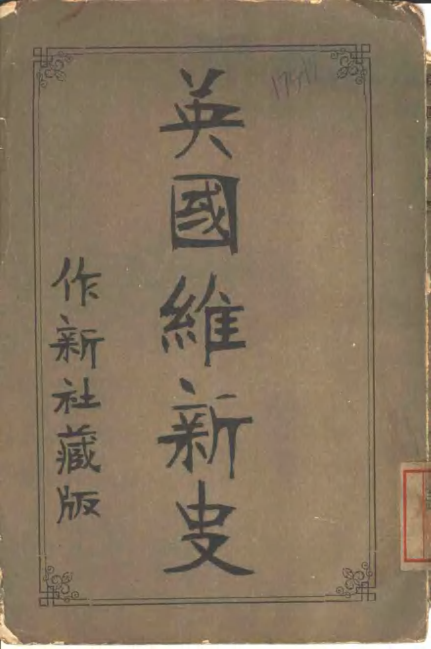 英國維新史
作新社藏版